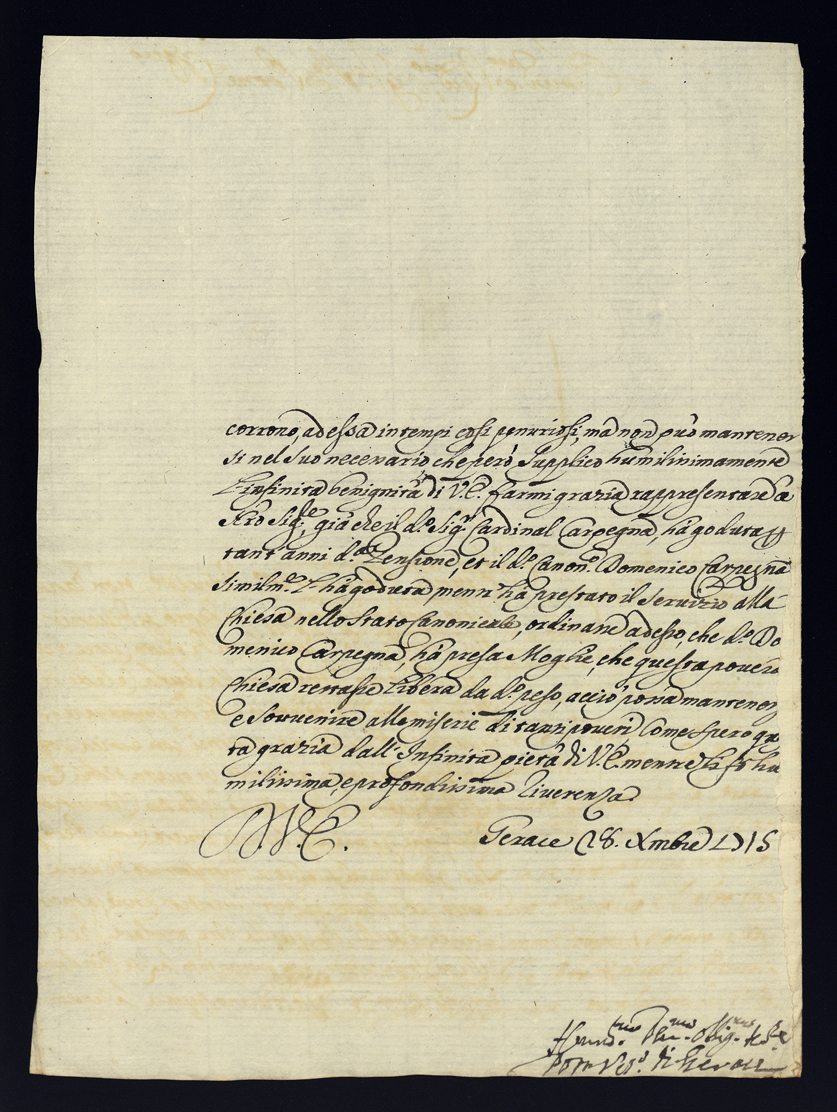 corrono, adessa in tempi così penuriosi, ma non può mantener
si nel suo necessario che però supplico humilissimamente
l'infinita benignità di V.E. farmi grazia rappresentare a
Sig.re, già che il d.o Sig.r Cardinal Carpegna, hà goduta
tant'anni d.a Pensione, et il d.o Canon.o Domenico Carpegna
similm.e l'hà goduta mentr' hà prestato il servizio alla
Chiesa nello stato Canonicale, ordinare adesso, che d.o Do
menico Carpegna, hà presa Moglie, che questa povera
Chiesa restasse libera da d.o peso, acciò possa mantener
e sovvenire alle miserie di tanti poveri come spero
ta grazia dall'Infinita pietà di V.E. mentre li fò hu
milissima, e profondissima riverenza
D. V. E.
Gerace 28. Xmbre 1715
Humil.mo obblig.mo
Vesc.o di Gerace